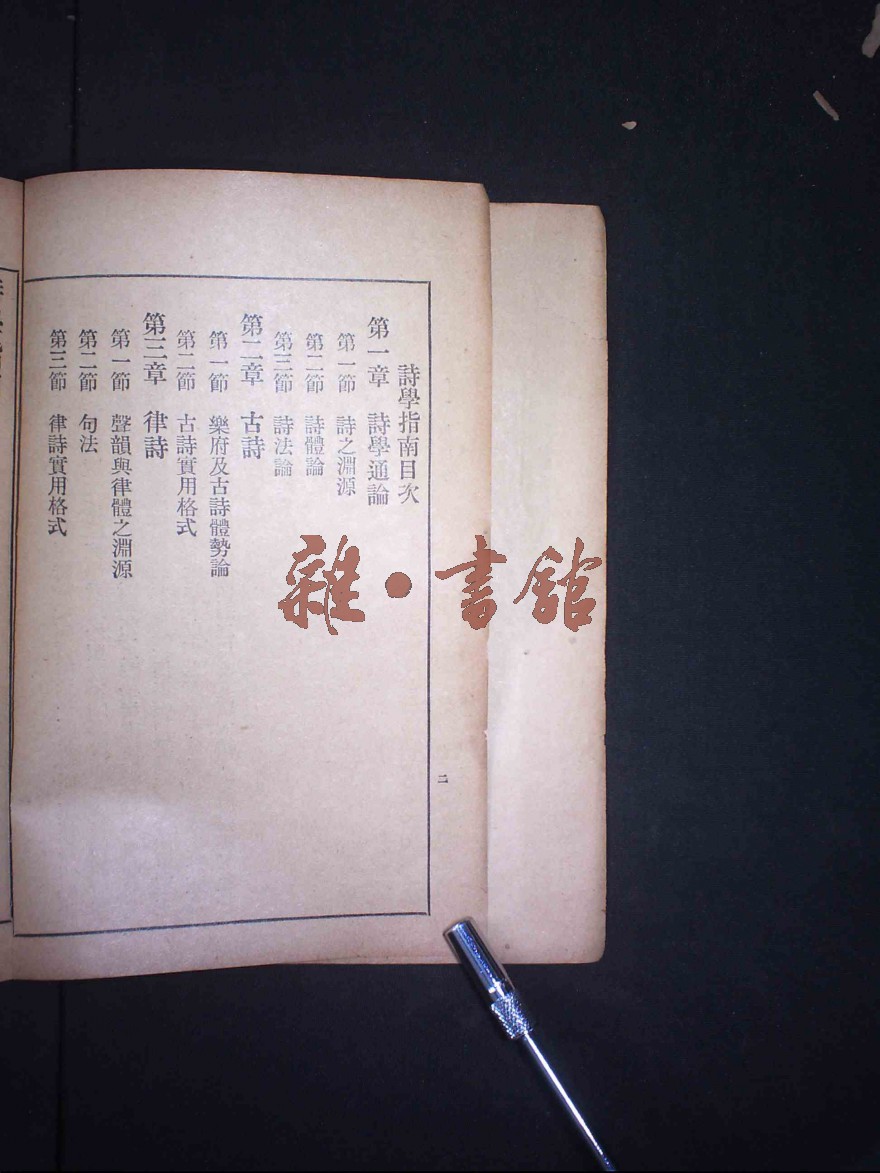 詩學指南目次
第一章 詩學通論
第一節 詩之淵源
第二節 詩體論
第三節 詩法論
第二章 古詩
第一節 樂府及古詩體勢論
第二節 古詩實用格式
第三章 律詩
第一節 聲韻與律體之淵源
第二節 句法
第三節 律詩實用格式
二
雜·書館